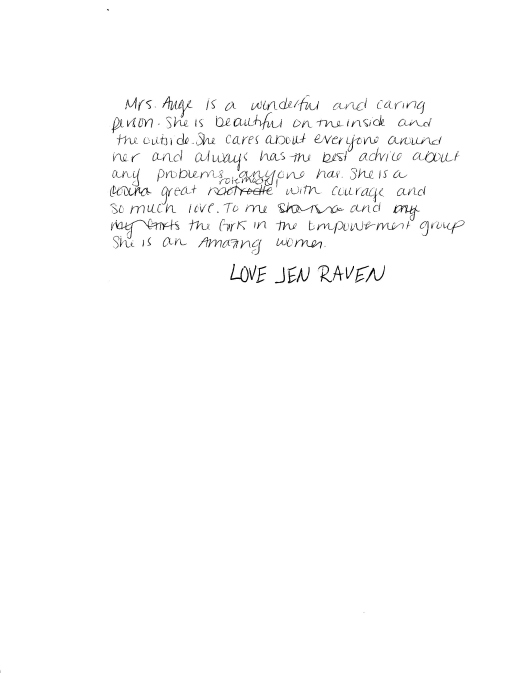 Mrs. Ange is a winderful and caring
person. She is beautiful on the inside and
the outside. She cares about everyone around
her and always has the best advice about
any problems anyone hav. She is a
great rolemodel with courage and
so much love. To me and
the Girls in the Empowerment group
She is an Amazing women.
LOVE JEN RAVEN